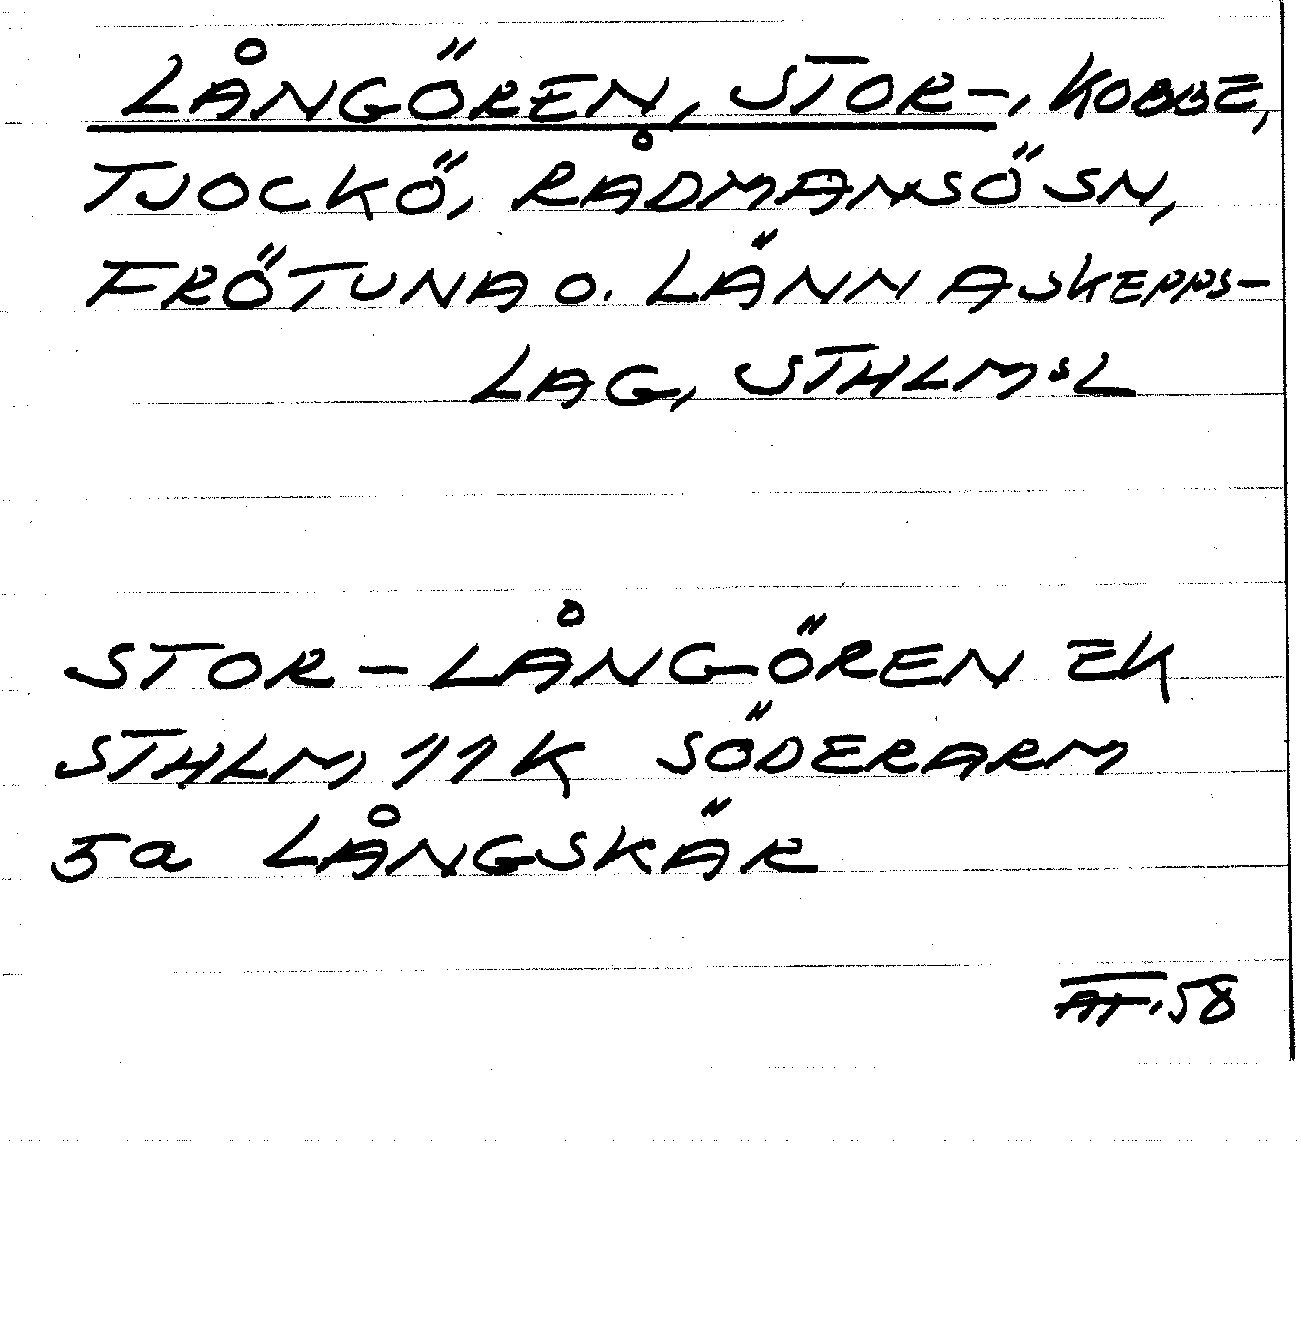 LÅNGÖREN, STOR-, KOBBE,
TJOCKÖ, RÅDMANSÖ SN,
FRÖTUNA O. LÄNNA SKEPPS-
LAG, STHLMS L
STOR-LÅNGÖREN EK
STHLM 11K SÖDERARM
5a LÅNGSKÄR
AF.58